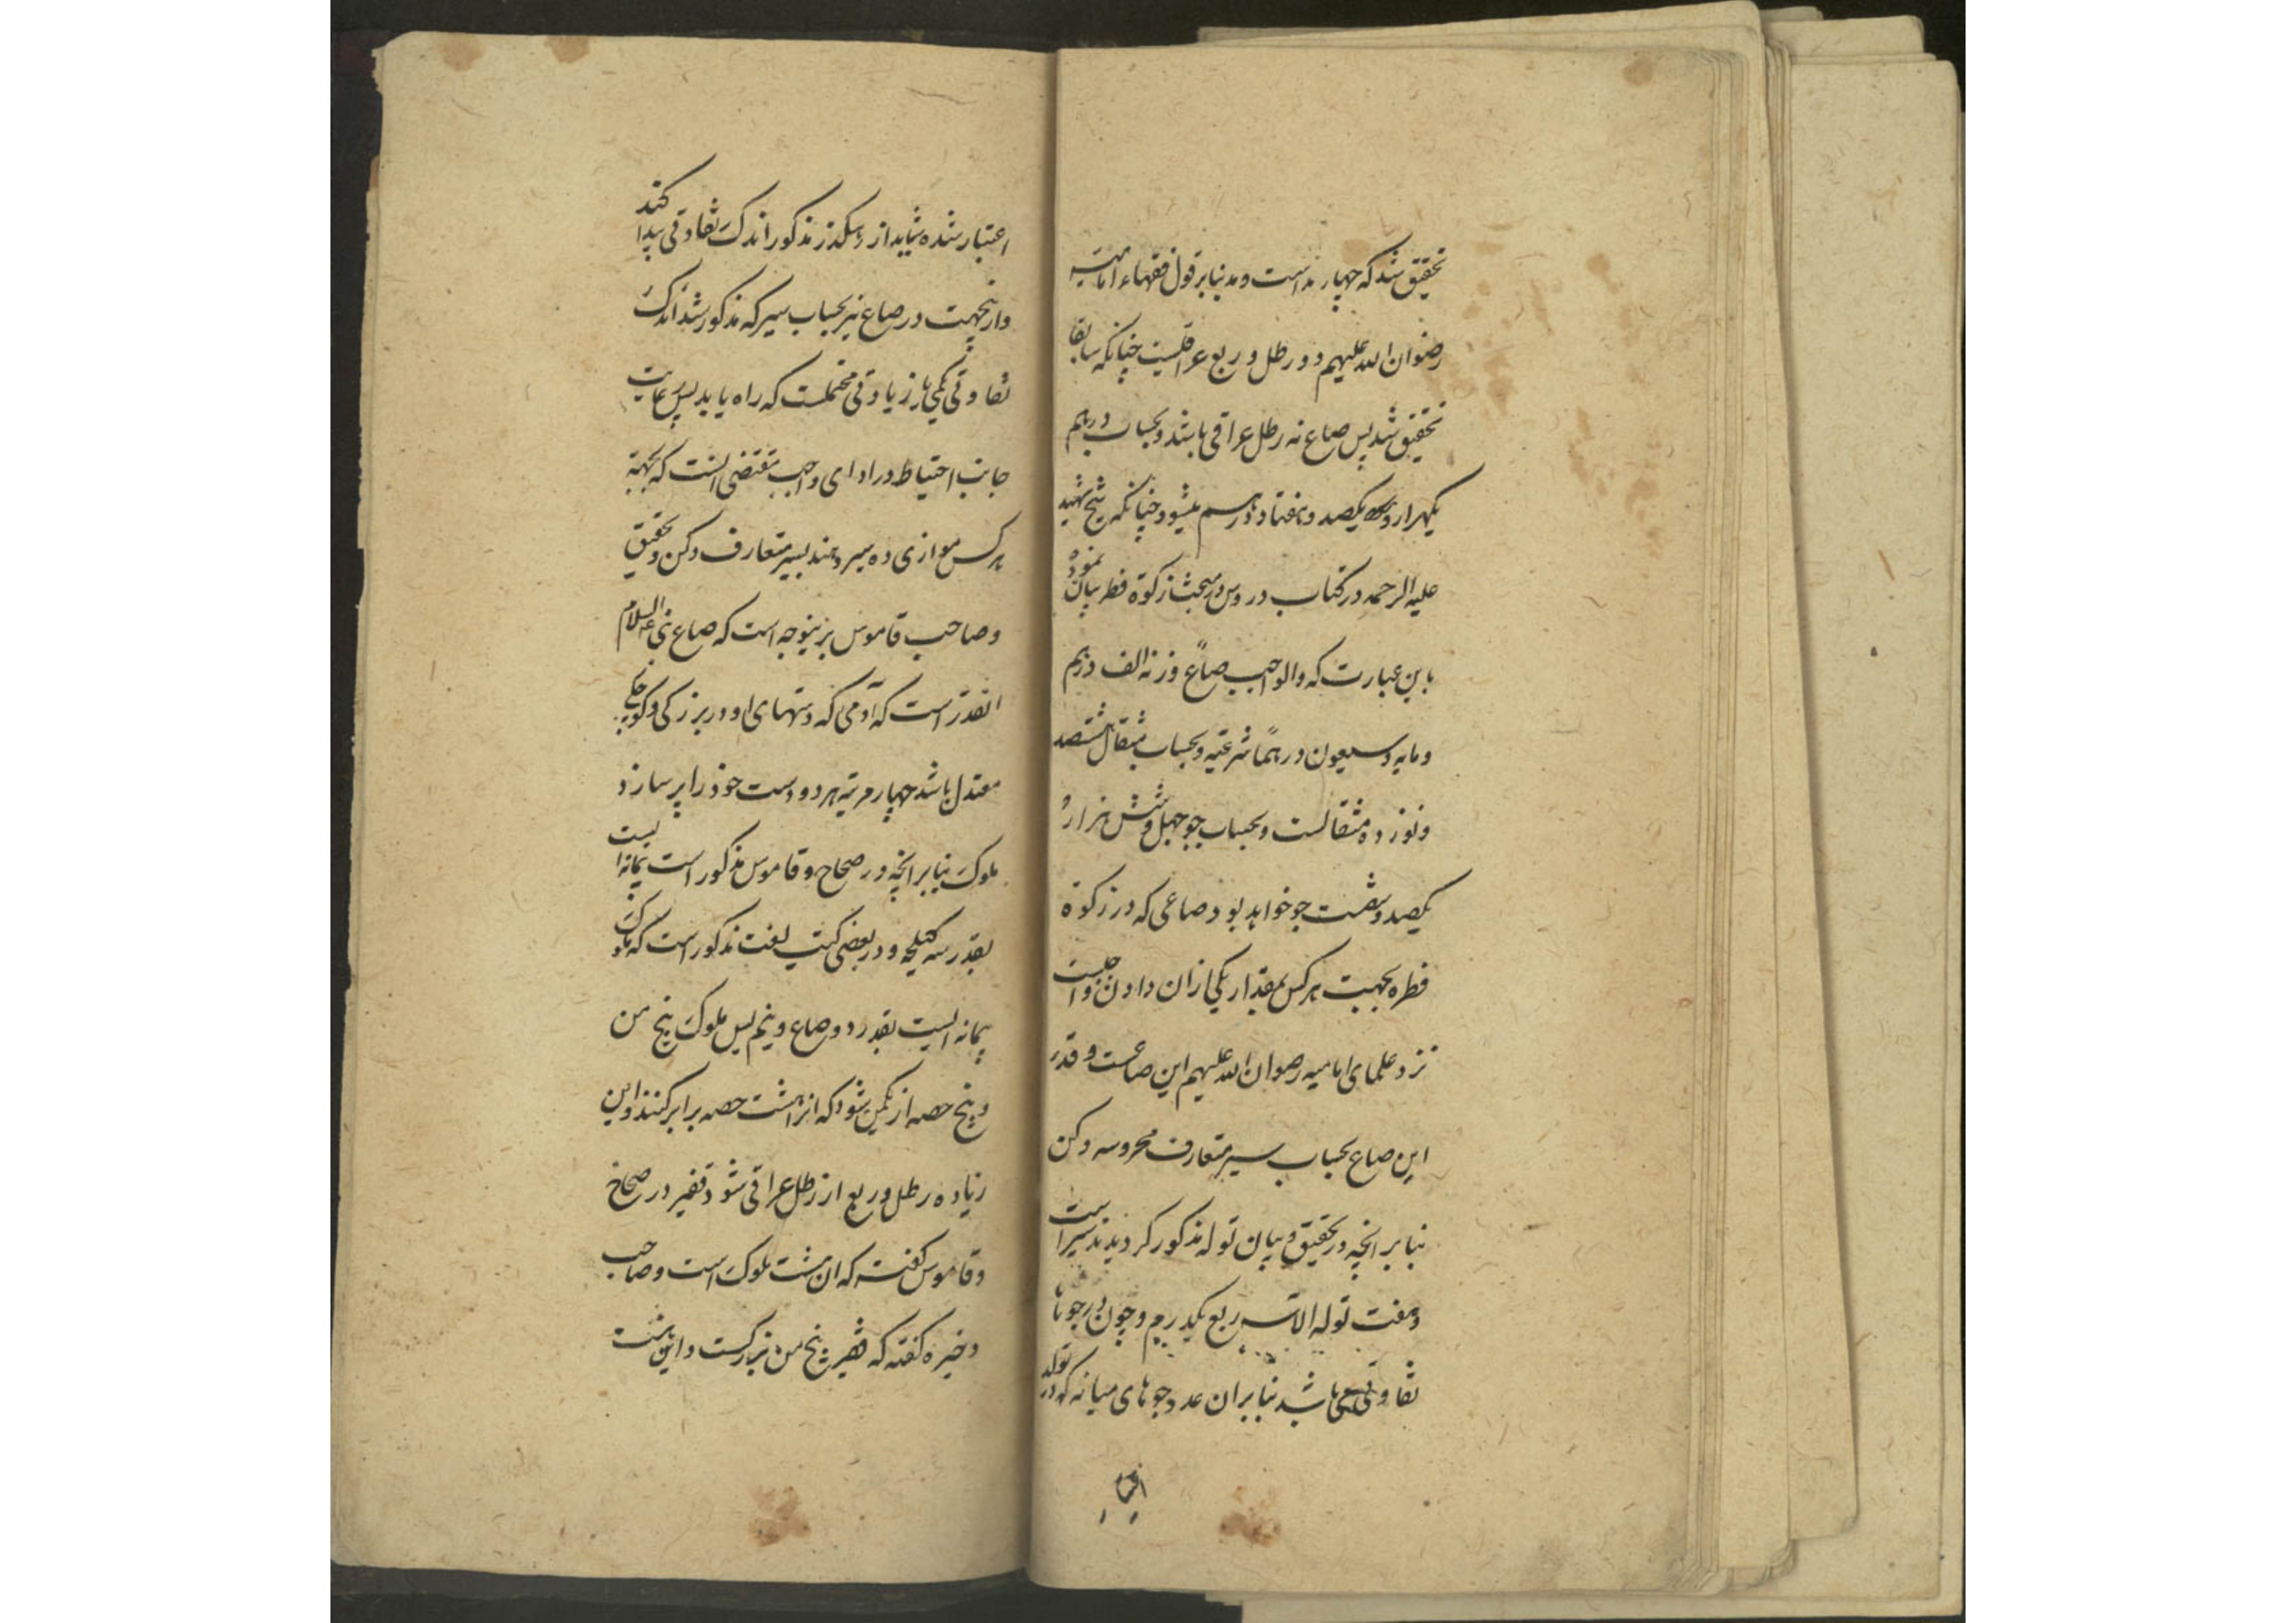 تحقیق شد که چهار مد است و مد بنابر قول فقهاء امامیه
رضوان الله علیهم دو رطل و ربع عراقیست چنانکه سابقا
تحقیق شد پس صاع نه رطل عراقی باشد و بحساب درهم
یکهزار و یکصد و هفتاد درهم میشود چنانکه شیخ شهید
علیه الرحمه در کتاب دروس در مبحث زکوة فطر بیان نموده
باین عبارت که والواجب صاع وزنه الف درهم
ومایه وسبعون درهمًا شرعیه و بحساب مثقال هشتصد
و نوزده مثقالست و بحساب جو چهل و شش هزار و
یکصد و شصت جو خواهد بود صاعی که در زکوة
فطره بجهت هر کس مقدار یکی ازان دادن واجبست
نزد علمای امامیه رضوان الله علیهم این صاعست و قدر
این صاع بحساب سیر متعارف محروسه دکن
بنابر انچه در تحقیق و بیان توله مذکور کردید نه سیر است
و هفت توله الا سه ربع یکدرم و چون در جوها
تفاوتی می باشد بنابران عدد جوهای میانه که در توله
اعتبار
اعتبار شده شاید از مذکور اندک تفاوتی پیدا کند
و ازینجهت در صاع نیز بحساب سیر که مذکور شد اندک
تفاوتی بکمی یا زیادتی محتملست که راه یابد پس رعایت
جانب احتیاط در ادای واجب مقتضی انست که بجهة
هر کس موازی ده سیر دهند بسیر متعارف دکن و تحقیق
وصاحب قاموس برینوجه است که صاع نبی علیه السلام
انقدر است که آدمی که دستهای او در بزرکی و کوچکی
معتدل باشد چهار مرتبه هر دو دست خود را پر سازد
ملوک بنابر انچه در صحاح و قاموس مذکور است پیمانه ایست
بقدر سه کیلجه و در بعضی کتب لغت مذکور است که ملوک
پیمانه ایست بقدر دو صاع و نیم پس ملوک پنج من
و پنج حصه از یکمن شود که انرا هشت حصه برابر کنند و این
زیاده رطل و ربع از رطل عراقی شود قفیز در صحاح
و قاموس کفته که ان هشت ملوک است و صاحب
ذخیره کفته که قفیز پنج من بزرکست و این